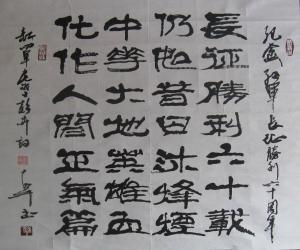 紀念红軍長征勝利六十周年
長征勝利六十載
仍 昔日沐烽煙
中華大地英雄血
化作人間正氣篇